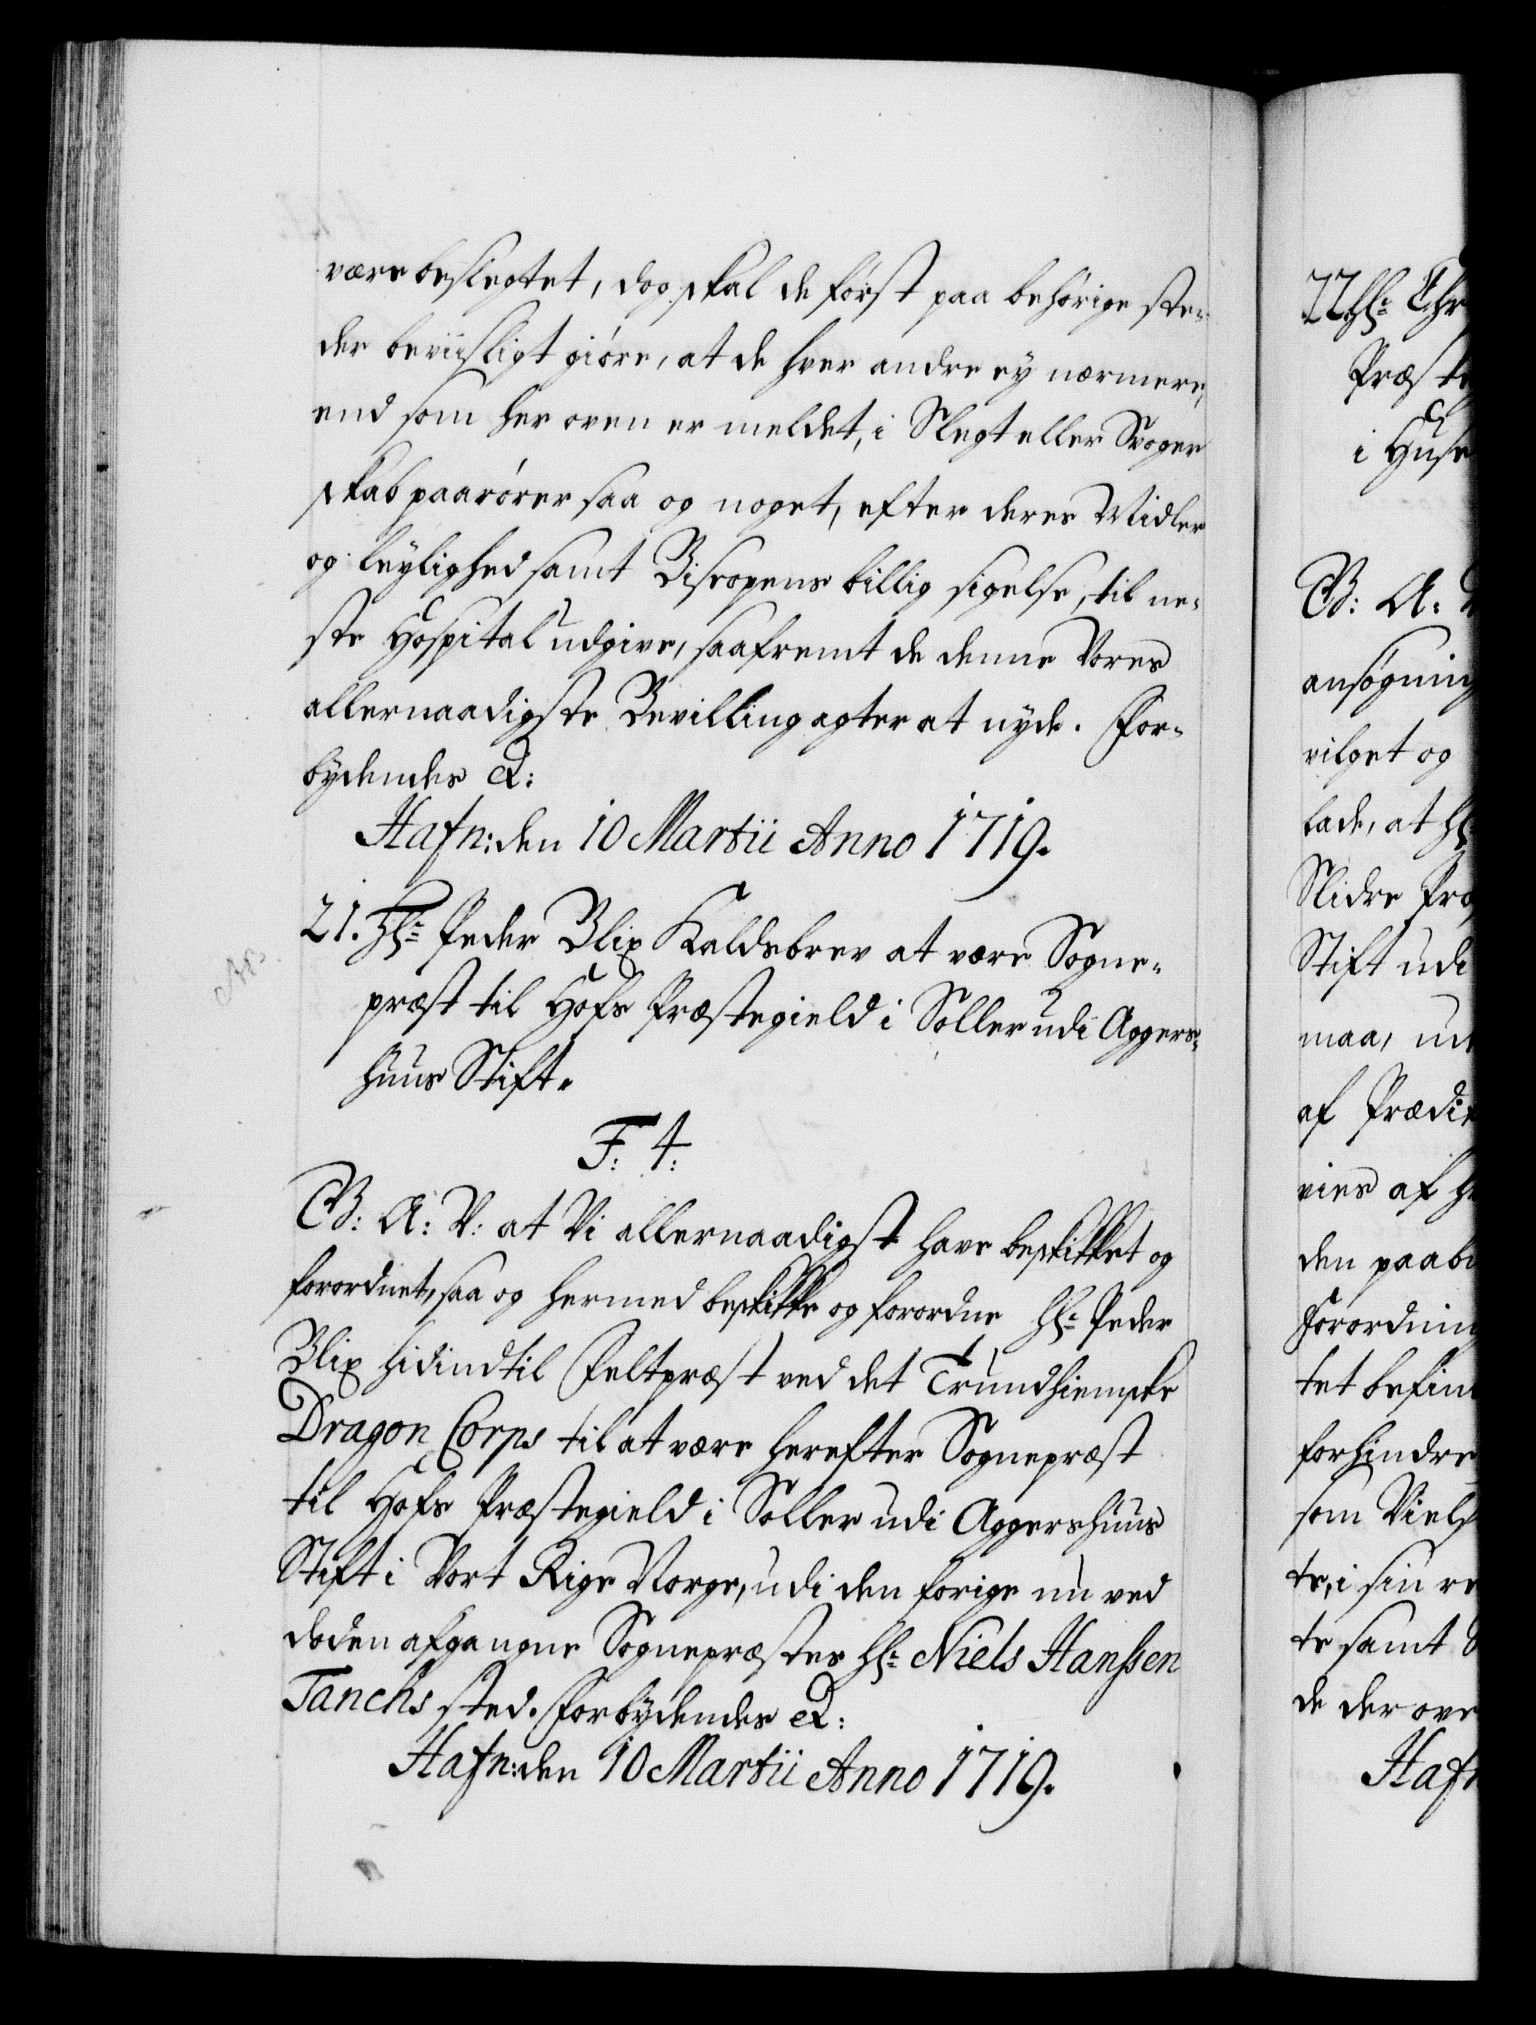 være beslegtet, dog skal de først paa behörige ste-
der beviisligt giöre, at de hver andre ey nærmere,
end som her oven er meldet, i Slegt eller Svoger
skab paarörer saa og noget, efter deres Midler
og leylighed samt Biscopens billig sigelse, til ne-
ste Hospital udgive, saafremt de denne Vores
allernaadigste Bevilling agter at nyde. For-
bydendes &:
Hafn: den 10 Martii Anno 1719.
21. Hr: Peder Blix Kaldsbrev at være Sogne-
præst til Hofs Præstegield i Soller udi Aggers-
huus Stift.
F: 4:
G: A: V: at Vi allernaadigst have beskikket og
forordnet, saa og hermed beskikke og forordne Hr: Peder
Blix hidindtil Feltpræst ved det Trundhiemske
Dragon Corps til at være herefter Sognepræst
til Hofs Præstegield i Soller udi Aggershuus
Stift i Vort Rige Norge, udi den forige nu ved
døden afgangne Sognepræstes Hr: Niels Hanssen
Tanchs sted. Forbydendes &:
Hafn: den 10 Martii Anno 1719.
22. Hr: Chr
Præste
i Huse
G: A: V
ansøgning
vilget og
lade, at Hr:
Slidre Præ
Stift udi
maa, ud
af Prædi
vies af h
den paab
Forordning
tet befin
forhindre
som Viels
te, i sin re
te samt
de der ove
Hafn